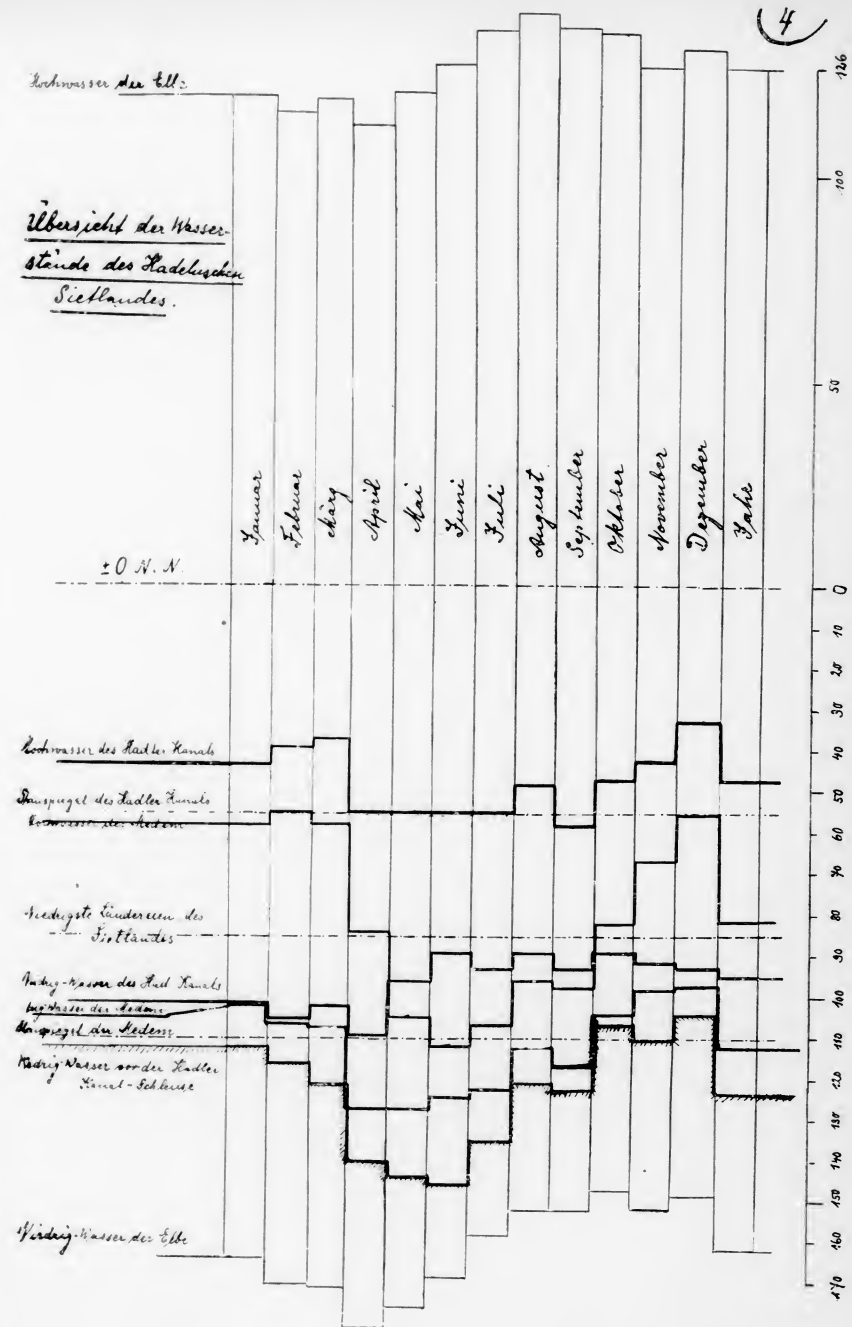 4
Hochwasser der Elbe
Übersicht der Wasser-
stände des Hadelnschen
Sietlandes.
Januar
Februar
März
April
Mai
Juni
Juli
August
September
Oktober
November
Dezember
Jahr
± 0 N. N.
Hochwasser des Hadler Kanals
Stauspiegel des Hadler Kanals
Hochwasser der Medem
Niedrigste Ländereien des
Sietlandes
Niedrig-Wasser des Had. Kanals
Wasser der Medem
Stauspiegel der Medem
Niedrig-Wasser vor der Hadler
Kanal-Schleuse
Niedrig-Wasser der Elbe
126
100
50
0
10
20
30
40
50
60
70
80
90
100
110
120
130
140
150
160
170